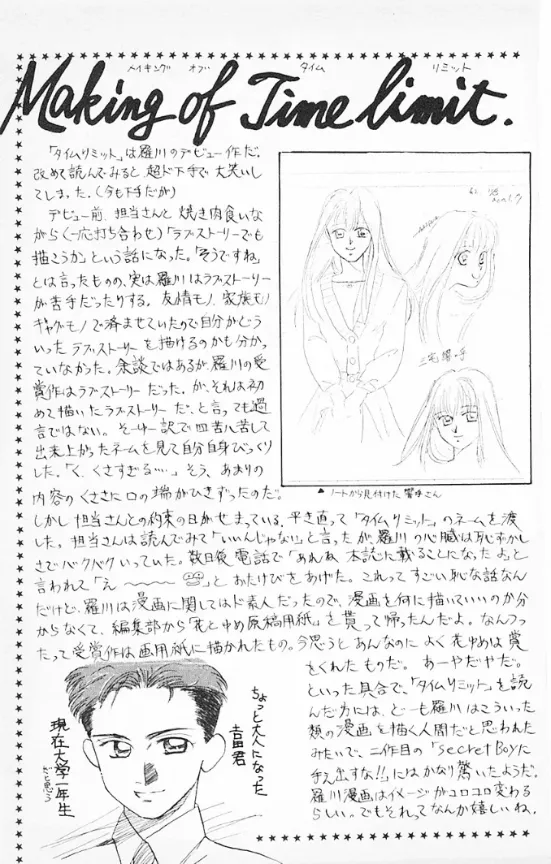 メイキング オブ タイム リミット
Making of Time limit.
「タイムリミット」は羅川のデビュー作だ。
改めて読んでみると超ド下手で大笑いし
てしまった。(今も下手だが)
デビュー前、担当さんと焼き肉食いな
がら(一応打ち合わせ)「ラブストーリーでも
描こうかという話になった。「そうですね」
とは言ったものの、実は羅川はラブストーリー
が苦手だったりする。友情モノ、家族モノ
ギャグモノで済ませていたので自分がどう
いったラブストーリーを描けるのかも分かっ
ていなかった。余談ではあるが、羅川の受
賞作はラブストーリーだった。が、それは初
めて描いたラブストーリーだ、と言っても過
言ではない。そーゆー訳で四苦八苦して
出来上がったネームを見て自分自身びっくり
した。「く、くさすぎる…」そう、あまりの
内容のくささに口の端がひきずったのだ。
しかし担当さんとの約束の日がせまっている。平き直って「タイムリミット」のネームを渡
した。担当さんは読んでみて「いいんじゃない」と言ったが、羅川の心臓は恥ずかし
さでバクバクいっていた。数日後電話で「あれね 本誌に載ることになったよ」と
言われて「え〜〜」とおたけびをあげた。これってすごい恥な話なん
だけど、羅川は漫画に関してはド素人だったので、漫画を何に描いていいのか分
からなくて、編集部から「花とゆめ原稿用紙」を貰って帰ったんだよ。なんつっ
たって受賞作は画用紙に描かれたもの。今思うとあんなのによく花ゆめは賞
をくれたものだ。あーやだやだ。
といった具合で、「タイムリミット」を読
んだ方には、どーも羅川はこういった
類の漫画を描く人間だと思われた
みたいで、二作目の「Secret Boyに
手え出すな!!」にはかなり驚いたようだ。
羅川漫画はイメージがコロコロ変わる
らしい。でもそれってなんか嬉しいね。
三宅響子
▲ノートから見付けた響子さん
ちょっと大人になった
吉田君
現在大学一年生
だと思う